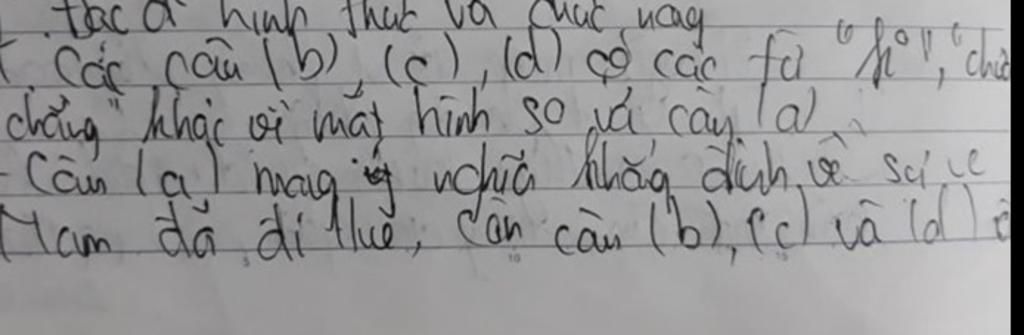 tác ở hình thức và chức nag
Các câu (b), (c), (d) có các từ "k°", "chư
chẳng" khác vì mặt hình so vá cây (a)
- Câu (a) mag ý nghĩa khẳg định về sự
Nam đã đi Huế, Còn câu (b), (c) và (d)